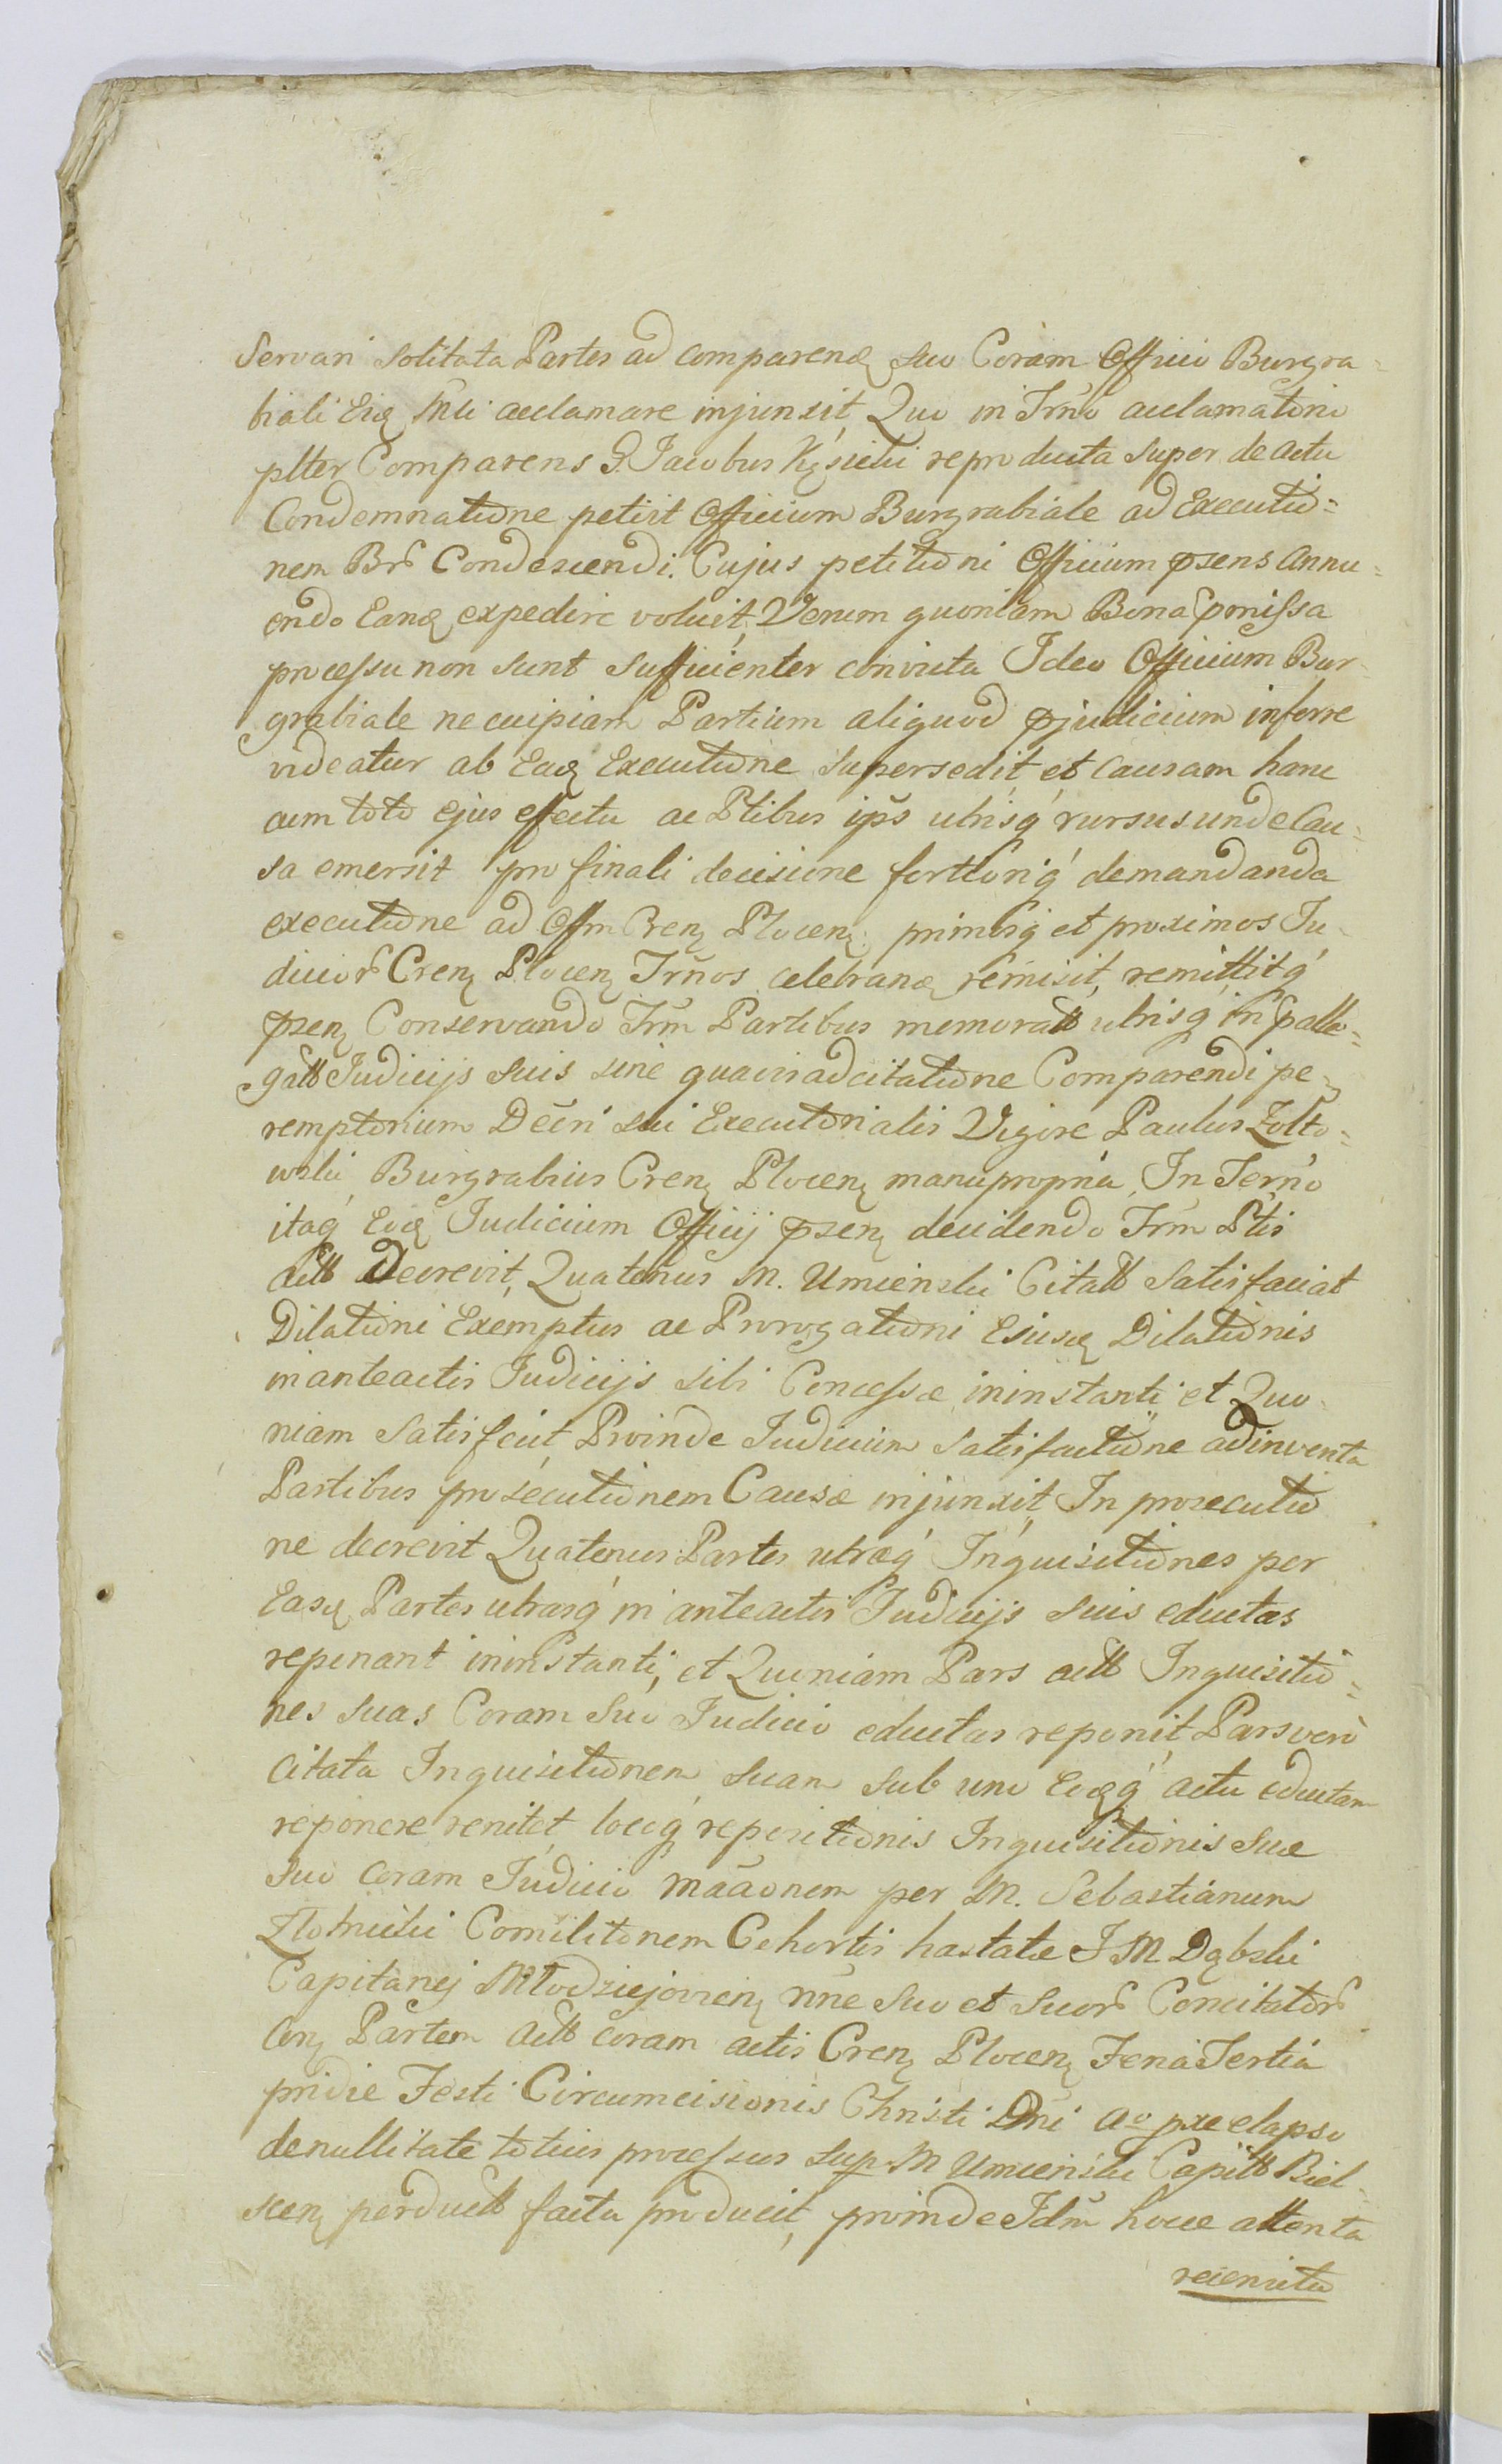 Servari solitata Partes ad comparenđ suo Coram Officio Burgra=
biali Eiđ Mli acclamare injunxit, Quo in Trno acclamationi
plter Comparens G. Jacobus Kęsicki reproducta super de actu
Condemnatione petiit Officium Burgrabiale ad Executio=
nem Brŏ Condescendi. Cujus petitioni Officium psens Annu=
endo Eanđ expedire voluit, Verum quoniam Bona pmissa
processu non sunt sufficienter convicta Ideo Officium Bur=
grabiale ne cuipiam Partium aliquod pjudicium inferre
videatur ab Eađ Executione supersedit, et Causam hanc
cum toto ejus effectu ac Ptibus ips utrisq́ rursus unde Cau=
sa emersit pro finali decisione fortiorıq́ demandanda
executione ad Offm Cren Plocen primosq́ et proximos Ju=
dicior Cren Plocen Trnos celebranđ remisit, remittitq́
psen Conservando Trm Partibus memoratt utrisq́ in palle=
gatt Judicijs suis sine quavis adcitatione Comparendi pe=
remptorium Decri sui Executorialis Vigore Paulus Zołto=
wski Burgrabius Cren Plocen manu propria, In Termo
itaq́ Eođ Judicium Officij psen decidendo Trm Ptis
Actt Decrevit, Quatenus M. Umienski Citatt satisfaciat
Dilationi Exemptus ac Prorogationi Ejusđ Dilationis
in anteactis Judicijs sibi Concessæ ininstanti et Quo=
niam Satisfecit, Proinde Judicium satisfactione adinventa
Partibus prosecutionem Causæ injunxit, In prosecutio
ne decrevit Quatenus Partes utræq́ Inquisitiones per
Easđ Partes utrasq́ in anteactis Judicijs suis eductas
reponant ininstanti, et Quoniam Pars actt Inquisitio=
nes suas Coram Suo Judicio eductas reponit, Pars vero
Citata Inquisitionem suam sub uno Eođq́ actu eductam
reponere renitet locoq́ repositionis Inquisitionis suæ
suo coram Judicio mããonem per M. Sebastianum
Złotnicki Comilitonem Cohortis hastatæ J M Dąbski
Capitanej Młodziejovien nne suo et suor Concitator
Con Partem Actt coram actis Cren Plocen Feria Tertia
pridie Festi Circumcisionis Christi Dni Aº præelapso
de nullitate totius processus sup M Umienski Capitt Biel=
scen perductt facta producit, proinde Idm hocce attenta
recensita